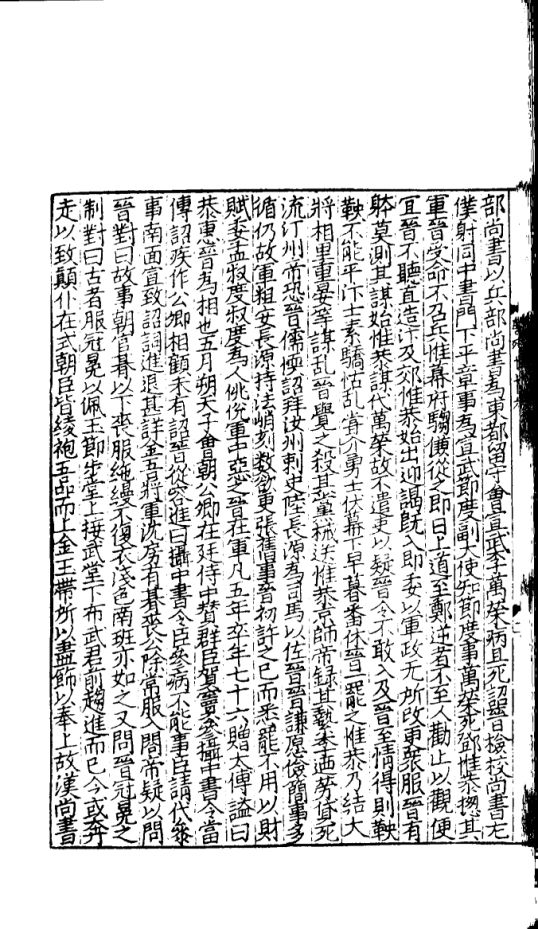 部尚書以兵部尚書為東都留守會宣武李萬榮病且死詔晉檢校尚書左
僕射同中書門下平章事為宣武節度副大使知節度事萬榮死鄧惟恭揔其
軍晉受命不召兵惟幕府騶傔從之即日上道至鄭逆者不至人勸止以觀便
宜晉不聽直造汴及郊惟恭始出迎謁既入即委以軍政无所改更衆服晉有
躰莫測其謀始惟恭謀代萬榮故不遣吏以疑晉令不敢入及晉至情得則鞅
鞅不能平汴士素驕怙乱肯介勇士伏幕下早暮番休晉一罷之惟恭乃結大
將相里重晏等謀乱晉覺之殺其黨械送惟恭京師帝録其執李迺勞貸死
流汀州帝恐晉儒愞詔拜汝州刺史陸長源為司馬以佐晉晉謙愿儉簡事多
循仍故軍粗安長源持法峭刻数欲更張舊事晉初許之已而悉罷不用以財
賦委孟叔度叔度為人佻侻軍中惡之晉在軍凡五年卒年七十六贈太傅謚曰
恭惠晉為相也五月朔天子會朝公卿在廷侍中賛群臣賀竇參攝中書令當
傳詔疾作公卿相顧未有詔晉從容進曰攝中書令臣參病不能事臣請代參
事南面宣致詔詞進退甚詳金吾將軍沈房有朞喪公除常服入閤帝疑以問
晉對曰故事朝官朞以下喪服絁縵不復衣淺色南班亦如之又問晉冠冕之
制對曰古者服冠冕以佩玉節步堂上接武堂下布武君前趨進而已今或奔
走以致顛仆在式朝臣皆綾袍五品而上金玉帶所以盡飾以奉上故漢尚書